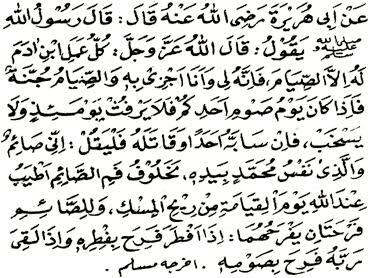 عَنْ أَبِى هُرَيْرَةَ رَضِىَ اللهُ عَنْهُ قَالَ : قَالَ رَسُوْلُ اللهِ
ﷺ يَقُوْلُ : قَالَ اللهُ عَزَّ وَجَلَّ : كُلُّ عَمَلِ ابْنِ اٰدَمَ
لَهُ اِلَّا الصِّيَامَ ، فَاِنَّهُ لِى وَاَنَا اَجْزِى بِهِ وَالصِّيَامُ جُنَّةٌ
فَاِذَا كَانَ يَوْمُ صَوْمِ اَحَدِكُمْ فَلَا يَرْفُثْ يَوْمَئِذٍ وَلَا
يَسْخَبْ ، فَاِنْ سَابَّهُ اَحَدٌ اَوْ قَاتَلَهُ فَلْيَقُلْ : اِنِّى صَائِمٌ
وَالَّذِى نَفْسُ مُحَمَّدٍ بِيَدِهِ ، لَخُلُوْفُ فَمِ الصَّائِمِ اَطْيَبُ
عِنْدَ اللهِ يَوْمَ الْقِيَامَةِ مِنْ رِيْحِ الْمِسْكِ ، وَلِلصَّائِمِ
فَرْحَتَانِ يَفْرَحُهُمَا : اِذَا اَفْطَرَ فَرِحَ بِفِطْرِهِ وَاِذَا لَقِىَ
رَبَّهُ فَرِحَ بِصَوْمِهِ . اخرجه مسلم .